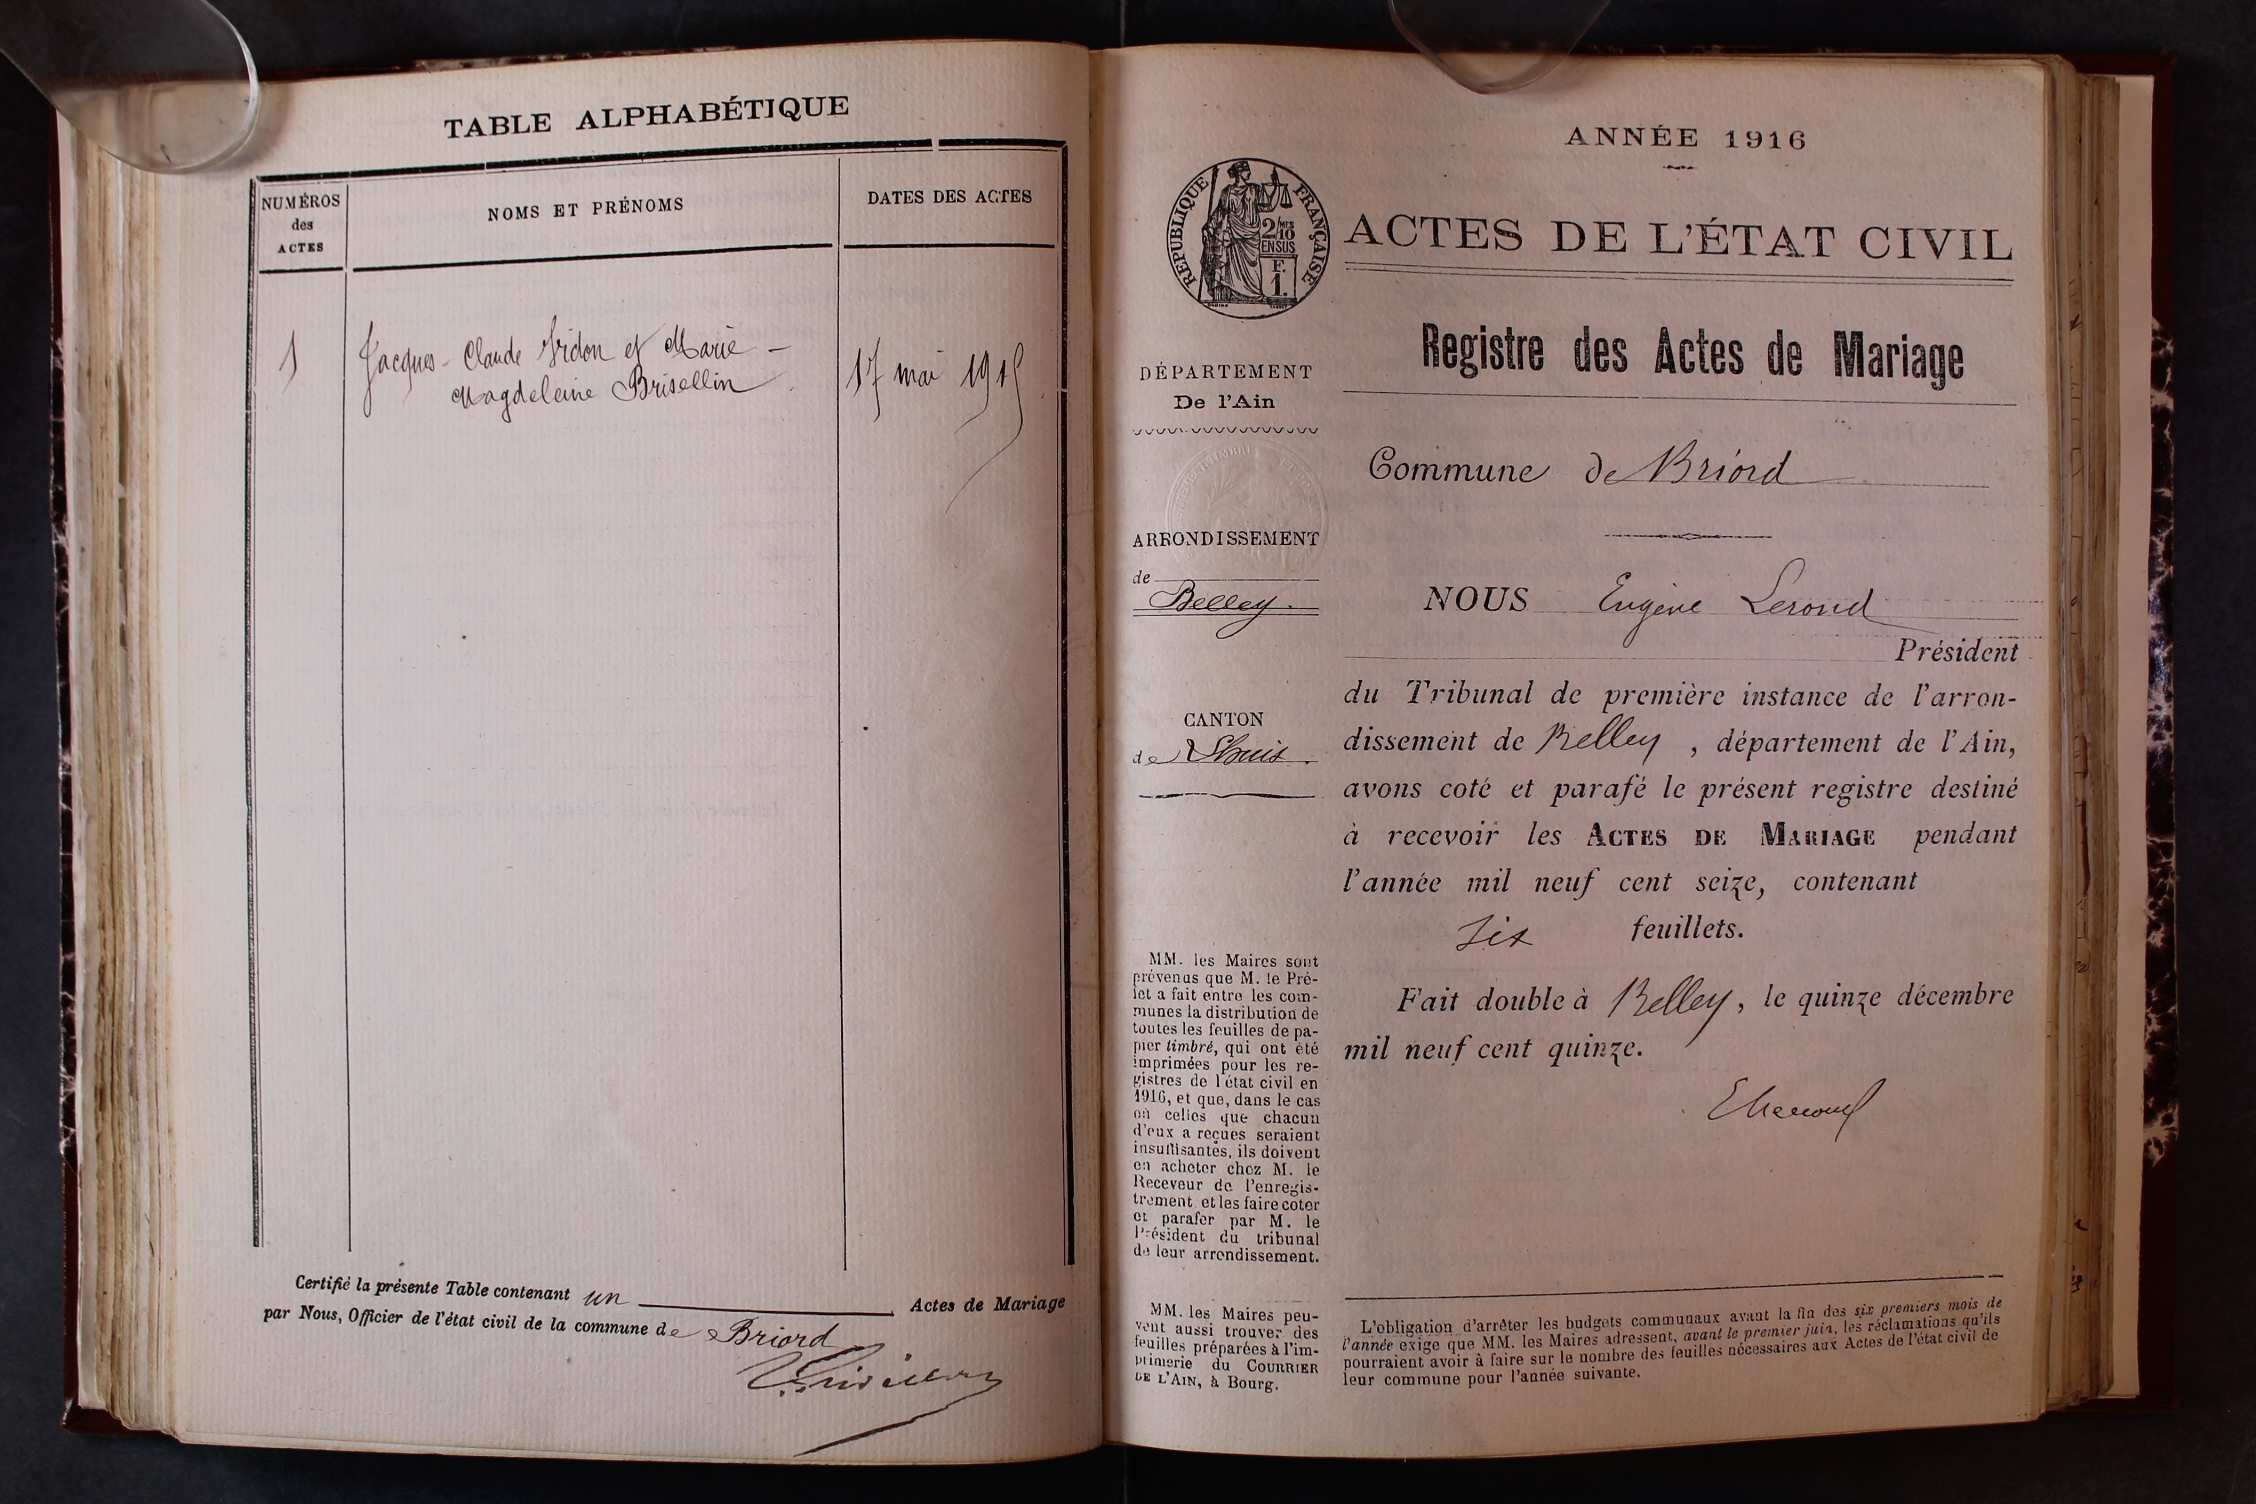 TABLE ALPHABÉTIQUE
NUMÉROS
des
ACTES
NOMS ET PRÉNOMS
DATES DES ACTES
1
Jacques-Claude Vidon et Marie-
Magdeleine Brisellin
17 mai 1915
Certifié la présente Table contenant un Actes de Mariage
par Nous, Officier de l'état civil de la commune de Briord
ANNÉE 1916
RÉPUBLIQUE FRANÇAISE
2/10 MES
EN SUS
F.
1.
ACTES DE L'ÉTAT CIVIL
Registre des Actes de Mariage
DÉPARTEMENT
De l'Ain
ARRONDISSEMENT
de
Belley.
CANTON
de Lhuis.
MM. les Maires sont
prévenus que M. le Pré-
fet a fait entre les com-
munes la distribution de
toutes les feuilles de pa-
pier timbré, qui ont été
imprimées pour les re-
gistres de l'état civil en
1916, et que, dans le cas
où celles que chacun
d'eux a reçues seraient
insuffisantes, ils doivent
en acheter chez M. le
Receveur de l'enregis-
trement et les faire coter
et parafer par M. le
Président du tribunal
de leur arrondissement.
MM. les Maires peu-
vent aussi trouver des
feuilles préparées à l'im-
primerie du COURRIER
DE L'AIN, à Bourg.
Commune de Briord
NOUS Eugène Lerond
Président
du Tribunal de première instance de l'arron-
dissement de Belley, département de l'Ain,
avons coté et parafé le présent registre destiné
à recevoir les ACTES DE MARIAGE pendant
l'année mil neuf cent seize, contenant
six feuillets.
Fait double à Belley, le quinze décembre
mil neuf cent quinze.
L'obligation d'arrêter les budgets communaux avant la fin des six premiers mois de
l'année exige que MM. les Maires adressent, avant le premier juin, les réclamations qu'ils
pourraient avoir à faire sur le nombre des feuilles nécessaires aux Actes de l'état civil de
leur commune pour l'année suivante.